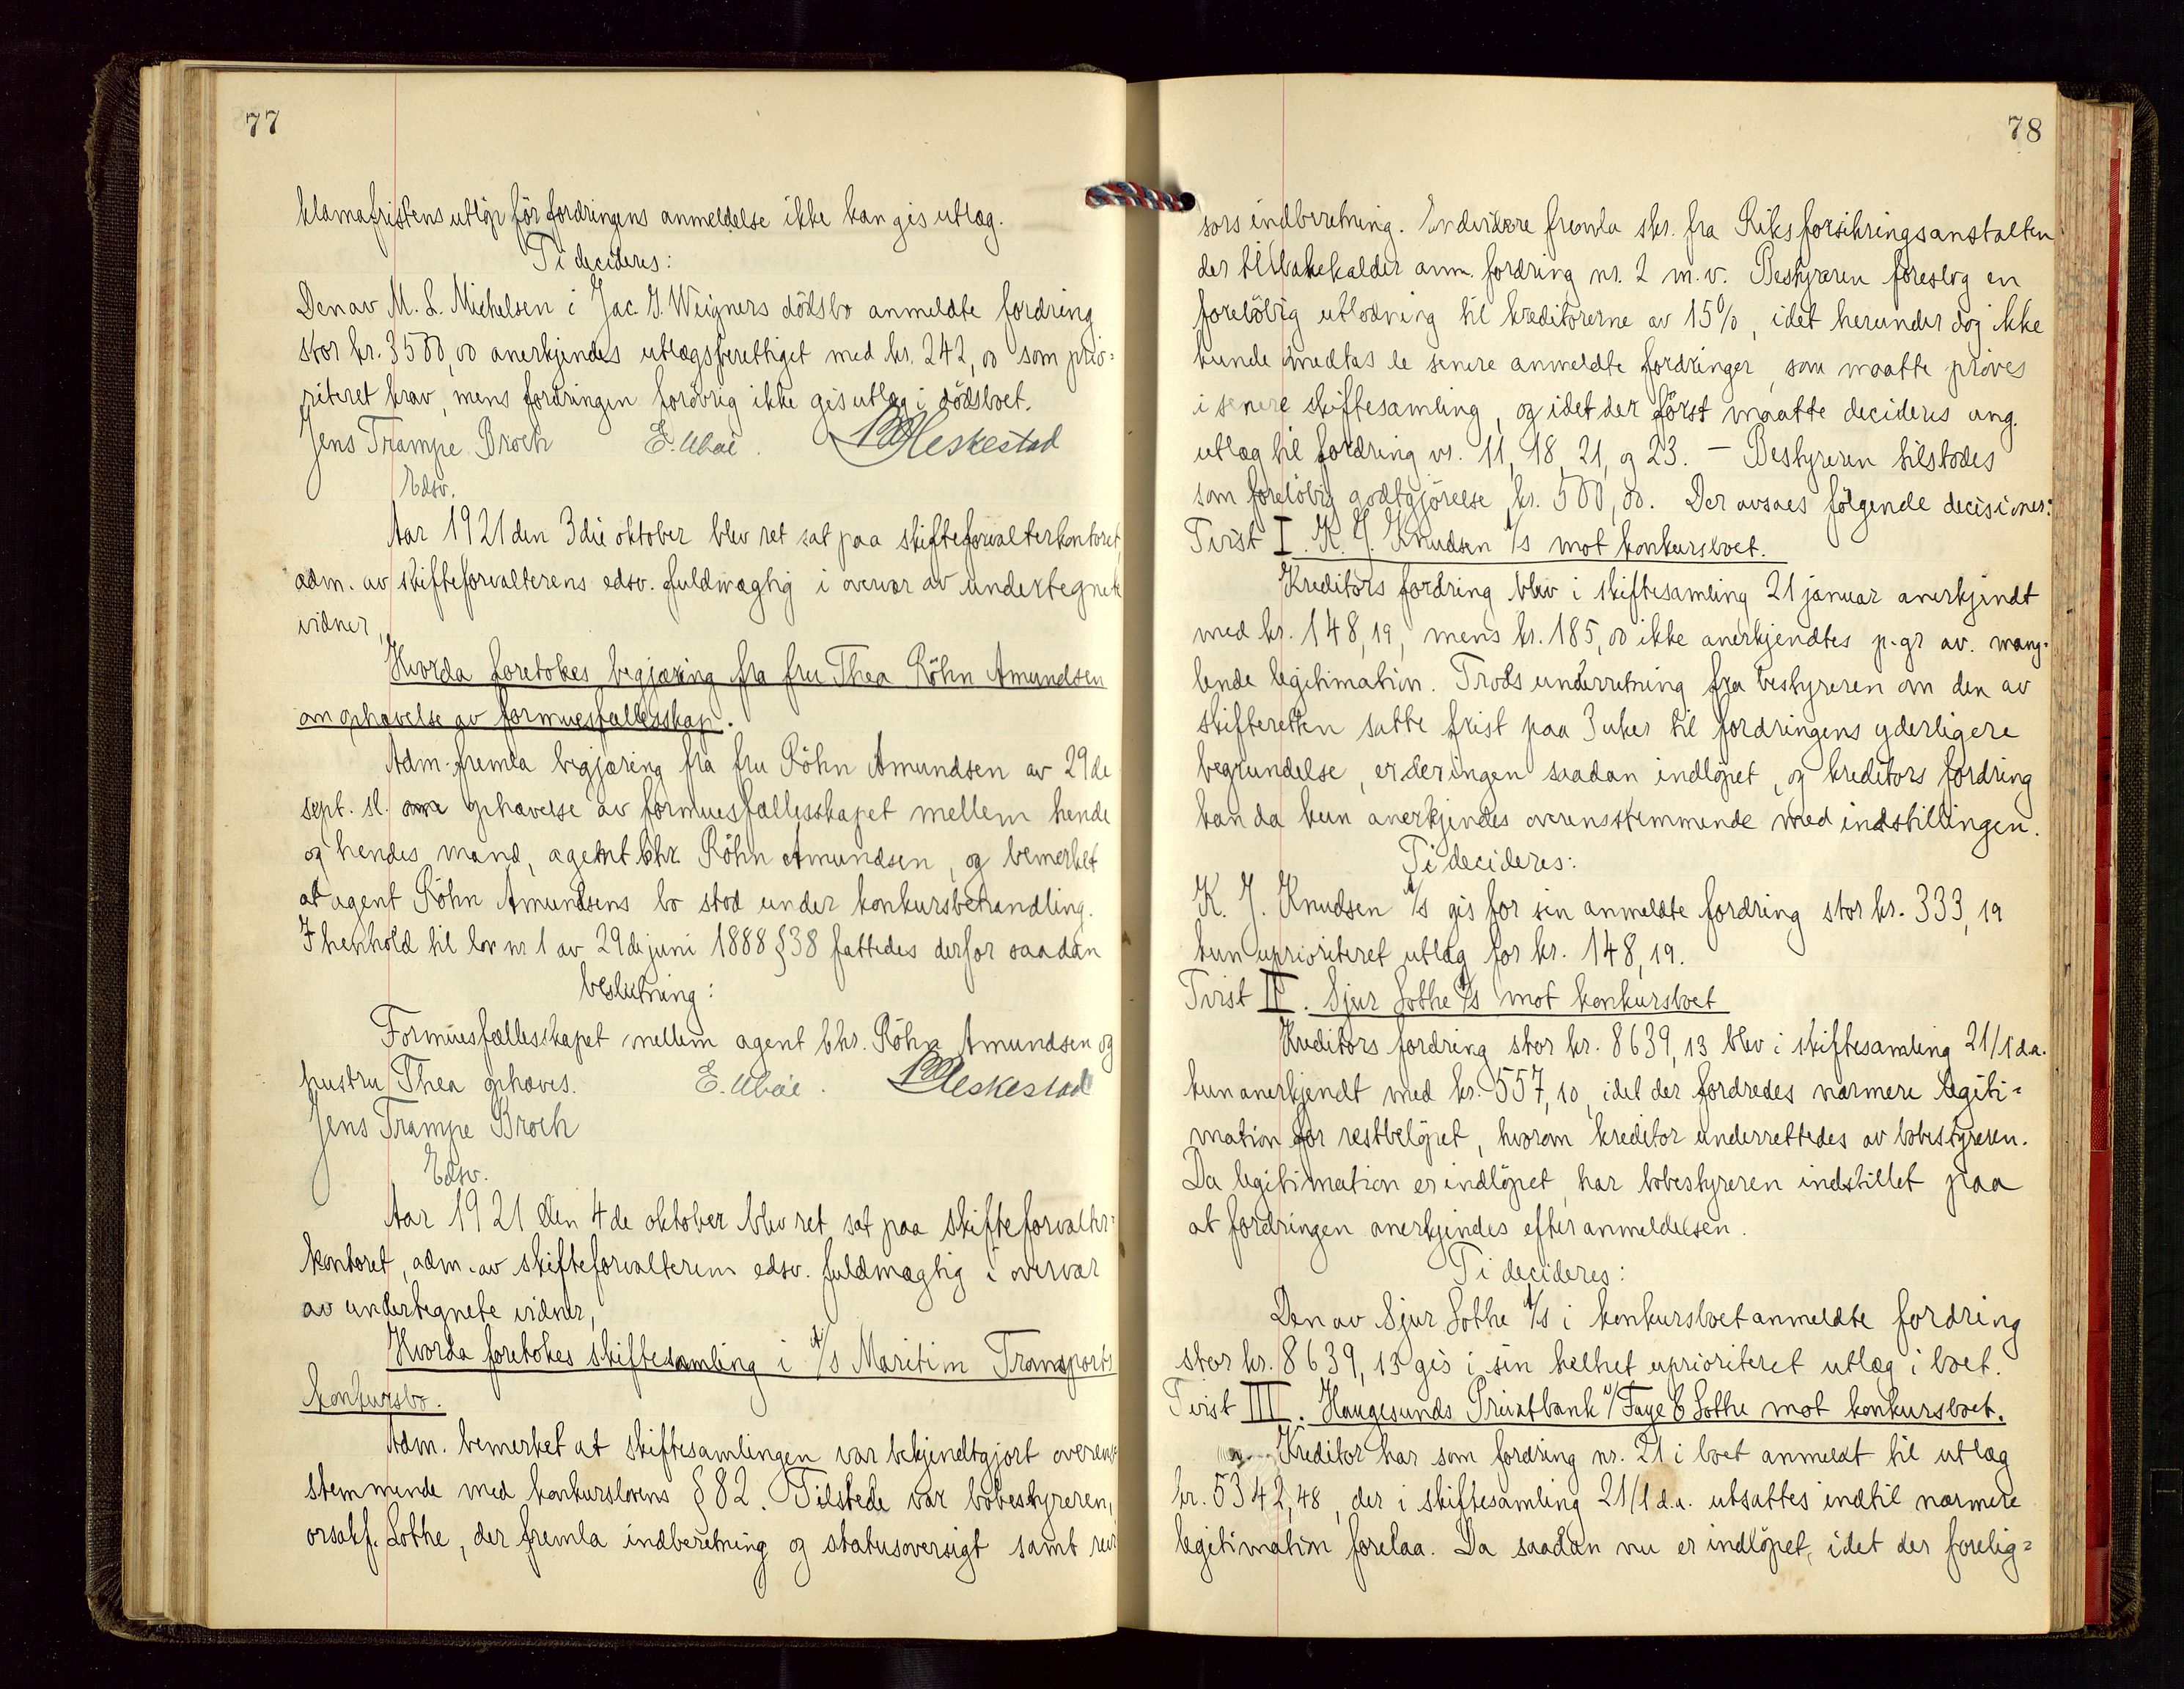 77
klamafristens utløp før fordringens anmeldelse ikke kan gis utlæg.
Ti decideres:
Den av M. L. Michelsen i Jac. J. Weigners dødsbo anmeldte fordring
stor kr. 3500,00 anerkjendes utlægsberettiget med kr. 242,00 som prio-
riteret krav, mens fordringen forøvrig ikke gis utlæg i dødsboet.
Jens Trampe Broch E. Ubøe. Heskestad
Edsv.
Aar 1921 den 3die oktober blev ret sat paa skifteforvalterkontoret
adm. av skifteforvalterens edsv. fuldmægtig i overvær av undertegnete
vidner,
Hvorda foretokes begjæring fra fru Thea Röhn Amundsen
om ophævelse av formuesfællesskap.
Adm. fremla begjæring fra fru Röhn Amundsen av 29de
sept. sl. om ophævelse av formuesfællesskapet mellem hende
og hendes mand, agent Chr. Röhn Amundsen, og bemerket
at agent Röhn Amundsens bo stod under konkursbehandling.
I henhold til lov nr 1 av 29de juni 1888 § 38 fattedes derfor saadan
beslutning:
Formuesfællesskapet mellem agent Chr. Röhn Amundsen og
hustru Thea ophæves. E. Ubøe. Heskestad
Jens Trampe Broch
Edsv.
Aar 1921 den 4de oktober blev ret sat paa skifteforvalter-
kontoret, adm. av skifteforvalterens edsv. fuldmægtig i overvær
av undertegnete vidner,
Hvorda foretokes skiftesamling i A/S Maritim Transports
konkursbo.
Adm. bemerket at skiftesamlingen var bekjendtgjort overens-
stemmende med konkurslovens § 82. Tilstede var bobestyreren,
orsakf. Lothe, der fremla indberetning og statusoversigt samt revi
78
sors indberetning. Endvidere fremla skr. fra Riksforsikringsanstalten
der tilbakekalder anm. fordring nr. 2 m.v. Bestyreren foreslog en
foreløbig utlodning til kreditorerne av 15%, idet herunder dog ikke
kunde medtas de senere anmeldte fordringer, som maatte prøves
i senere skiftesamling, og idet der først maatte decideres ang.
utlæg til fordring nr. 11, 18, 21, og 23. – Bestyreren tilstodes
som foreløbig godtgjørelse kr. 500,00. Der avsaes følgende decisioner:
Tvist I. K. J. Knudsen A/S mot konkursboet.
Kreditors fordring blev i skiftesamling 21 januar anerkjendt
med kr. 148,19, mens kr. 185,00 ikke anerkjendtes p.gr av. mang-
lende legitimation. Trods underretning fra bestyreren om den av
skifteretten satte frist paa 3 uker til fordringens yderligere
begrundelse, er der ingen saadan indløpet, og kreditors fordring
kan da kun anerkjendes overensstemmende med indstillingen.
Ti decideres:
K. J. Knudsen A/S gis for sin anmeldte fordring stor kr. 333,19
kun uprioriteret utlæg for kr. 148,19.
Tvist II. Sjur Lothe A/S mot konkursboet
Kreditors fordring stor kr. 8639,13 blev i skiftesamling 21/1 d.a.
kun anerkjendt med kr. 557,10, idet der fordredes nærmere legiti-
mation for restbeløpet, hvorom kreditor underrettedes av bobestyreren.
Da legitimation er indløpet, har bobestyreren indstillet paa
at fordringen anerkjendes efter anmeldelsen.
Ti decideres:
Den av Sjur Lothe A/S i konkursboet anmeldte fordring
stor kr. 8639,13 gis i sin helhet uprioriteret utlæg i boet.
Tvist III. Haugesunds Privatbank v/ Faye & Lothe mot konkursboet.
Kreditor har som fordring nr. 21 i boet anmeldt til utlæg
kr. 5342,48, der i skiftesamling 21/1 d.a. utsattes indtil nærmere
legitimation forelaa. Da saadan nu er indløpet, idet der forelig-